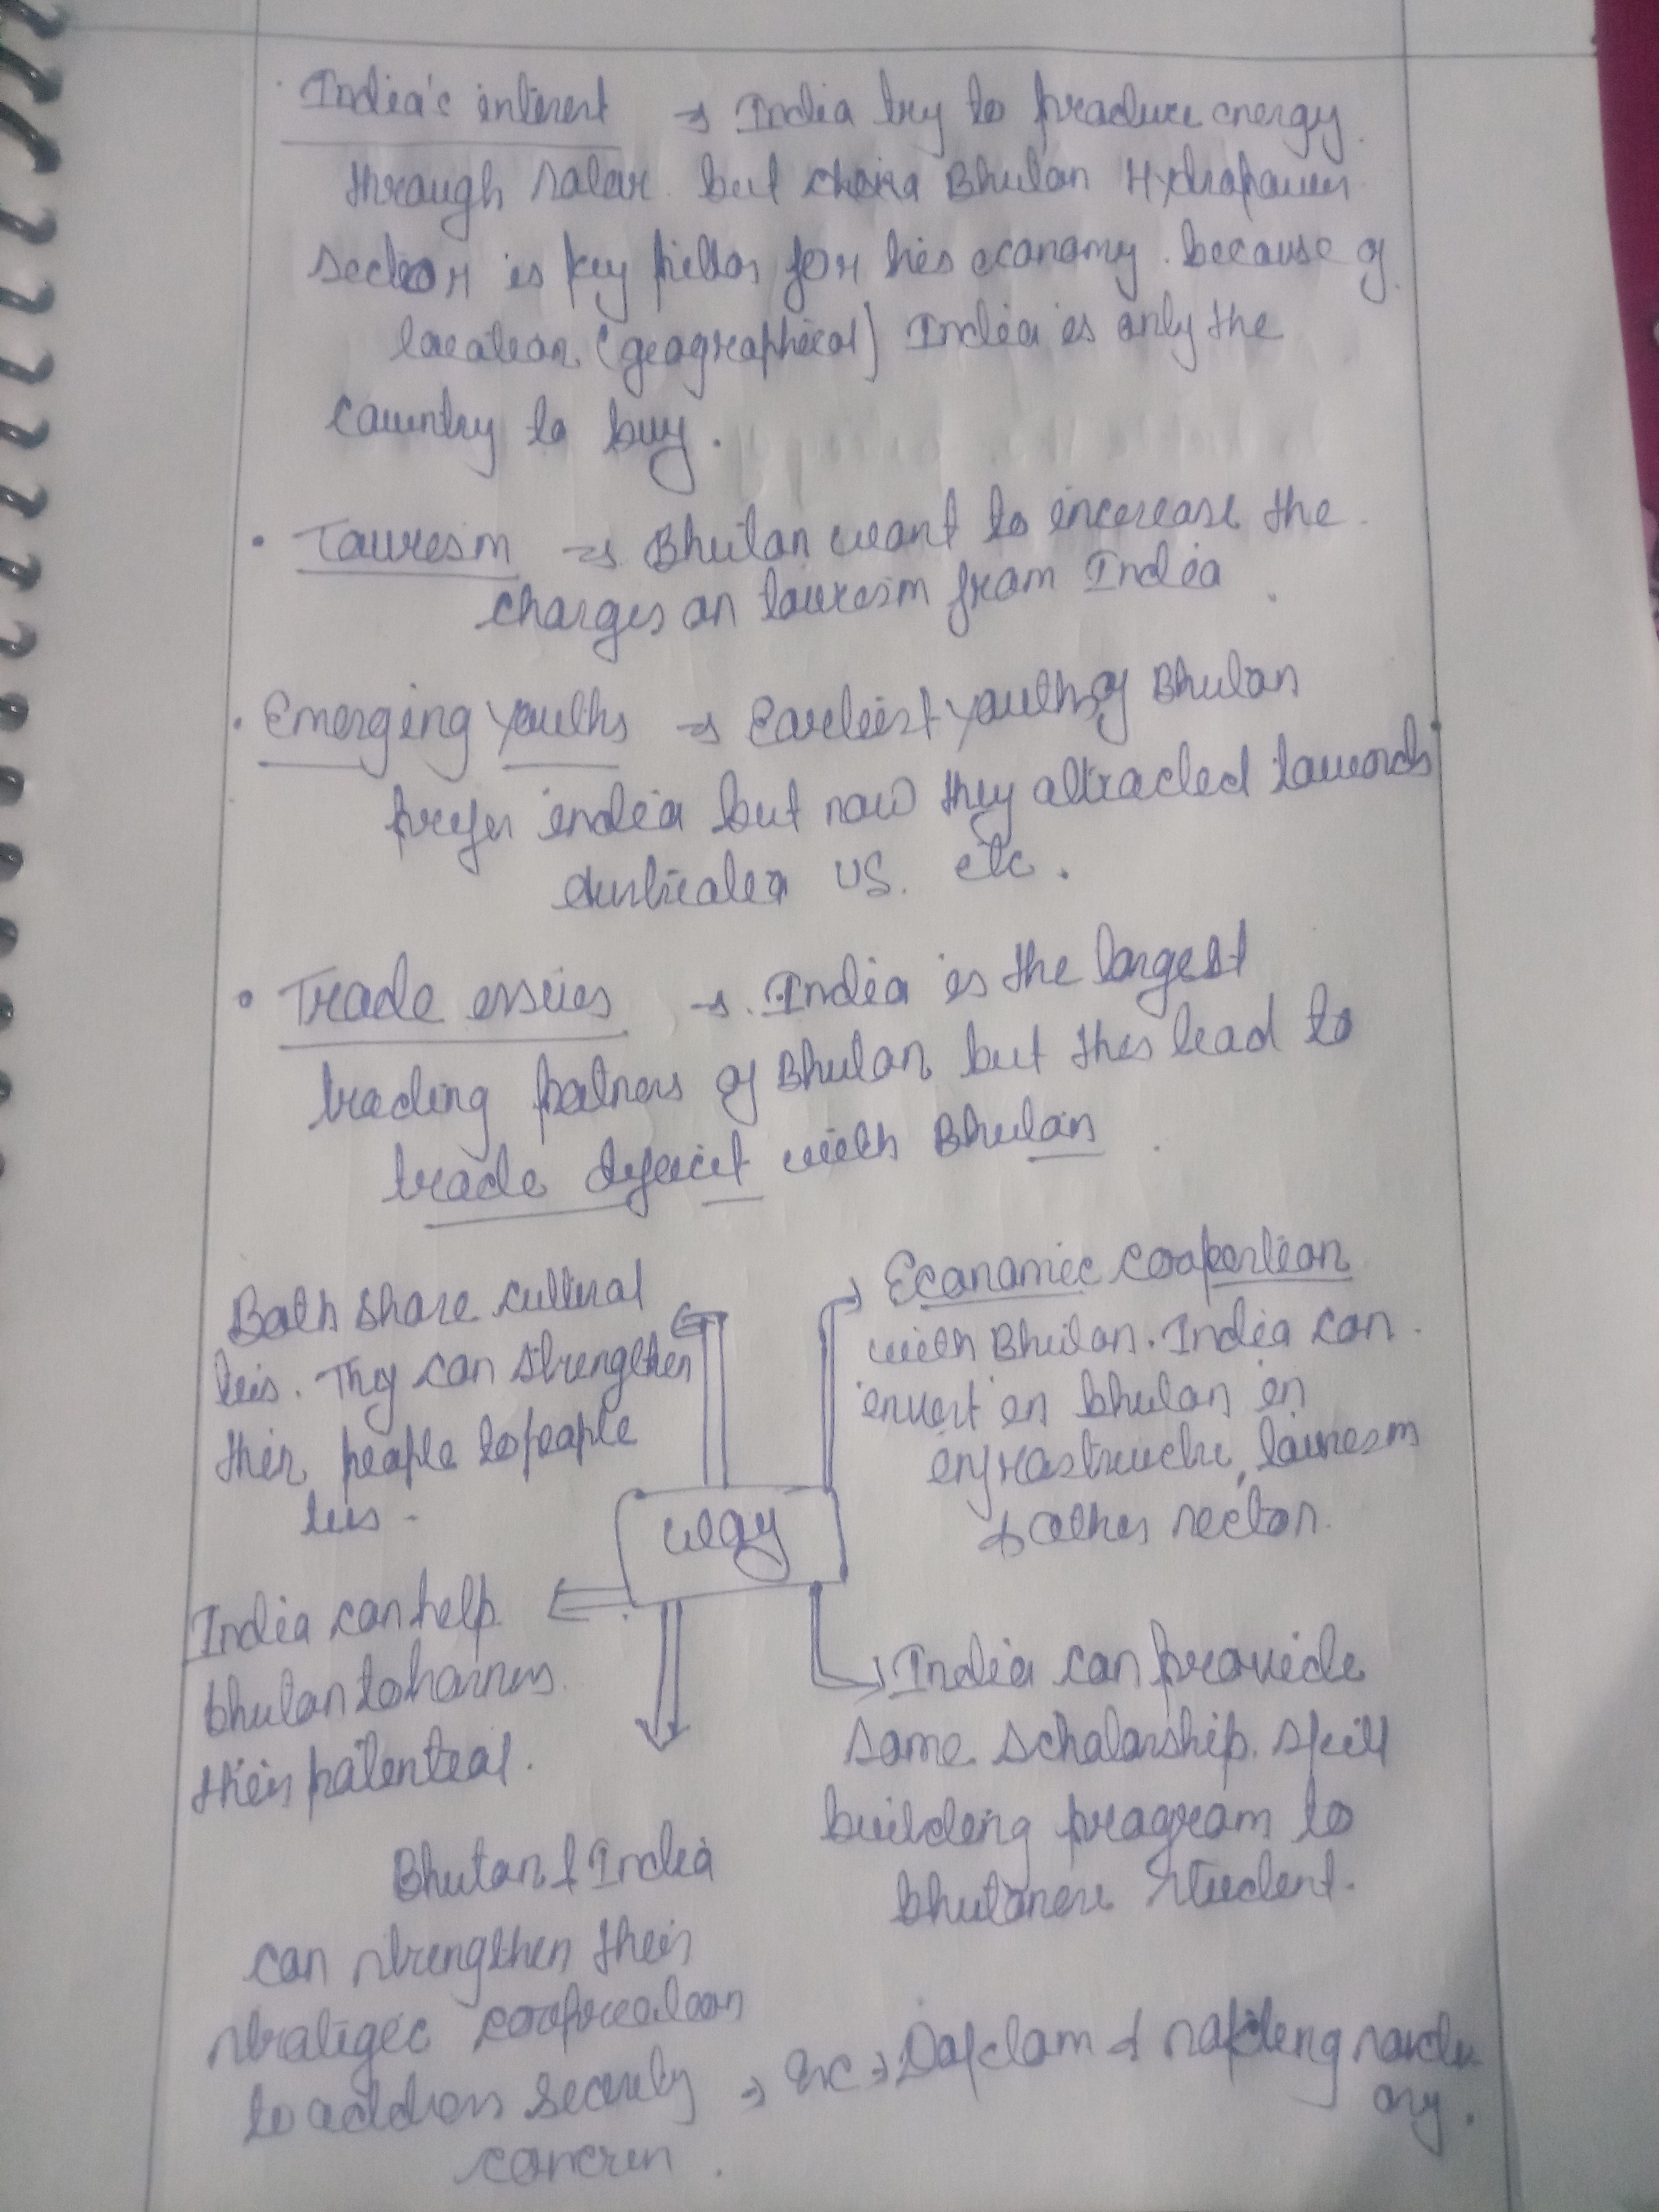 India's interest → India try to produce energy
through solar. but Bhutan Hydropower
sector is key pillar for his economy. because of
location (geographical) India is only the
country to buy.
• Tourism → Bhutan want to increase the
charges on tourism from India.
• Emerging youths → Earliest youths of Bhutan
prefer india but now they attracted towards
Australia US. etc.
• Trade issues → India is the largest
trading patners of Bhutan but this lead to
trade deficit with Bhutan.
Both share cultural
ties. They can strengthen
their people to people
ties.
Economic coopertion
with Bhutan. India can
invest in bhutan in
infrastructure, tourism
& other sector.
way
India can help
bhutan to harness
their potential.
India can provide
some scholarship. skill
building program to
bhutanese student.
Bhutan & India
can strengthen their
strategic cooperation
to address security → Ex → Doklam &
concern.